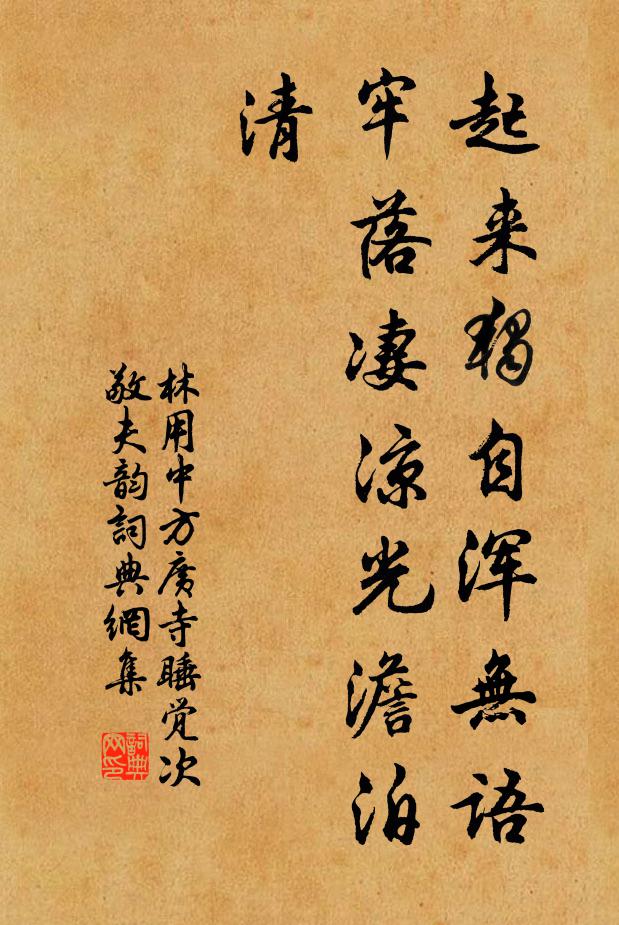 起来独自浑無語
牢落凄凉光澹泊
清
林用中方廣寺睡觉次
敬夫韵詞典網集
詞典
网印